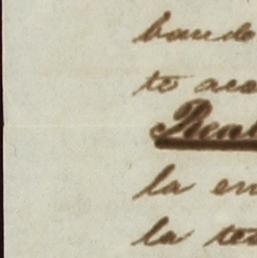 bando
te aca
Real
la en
la te